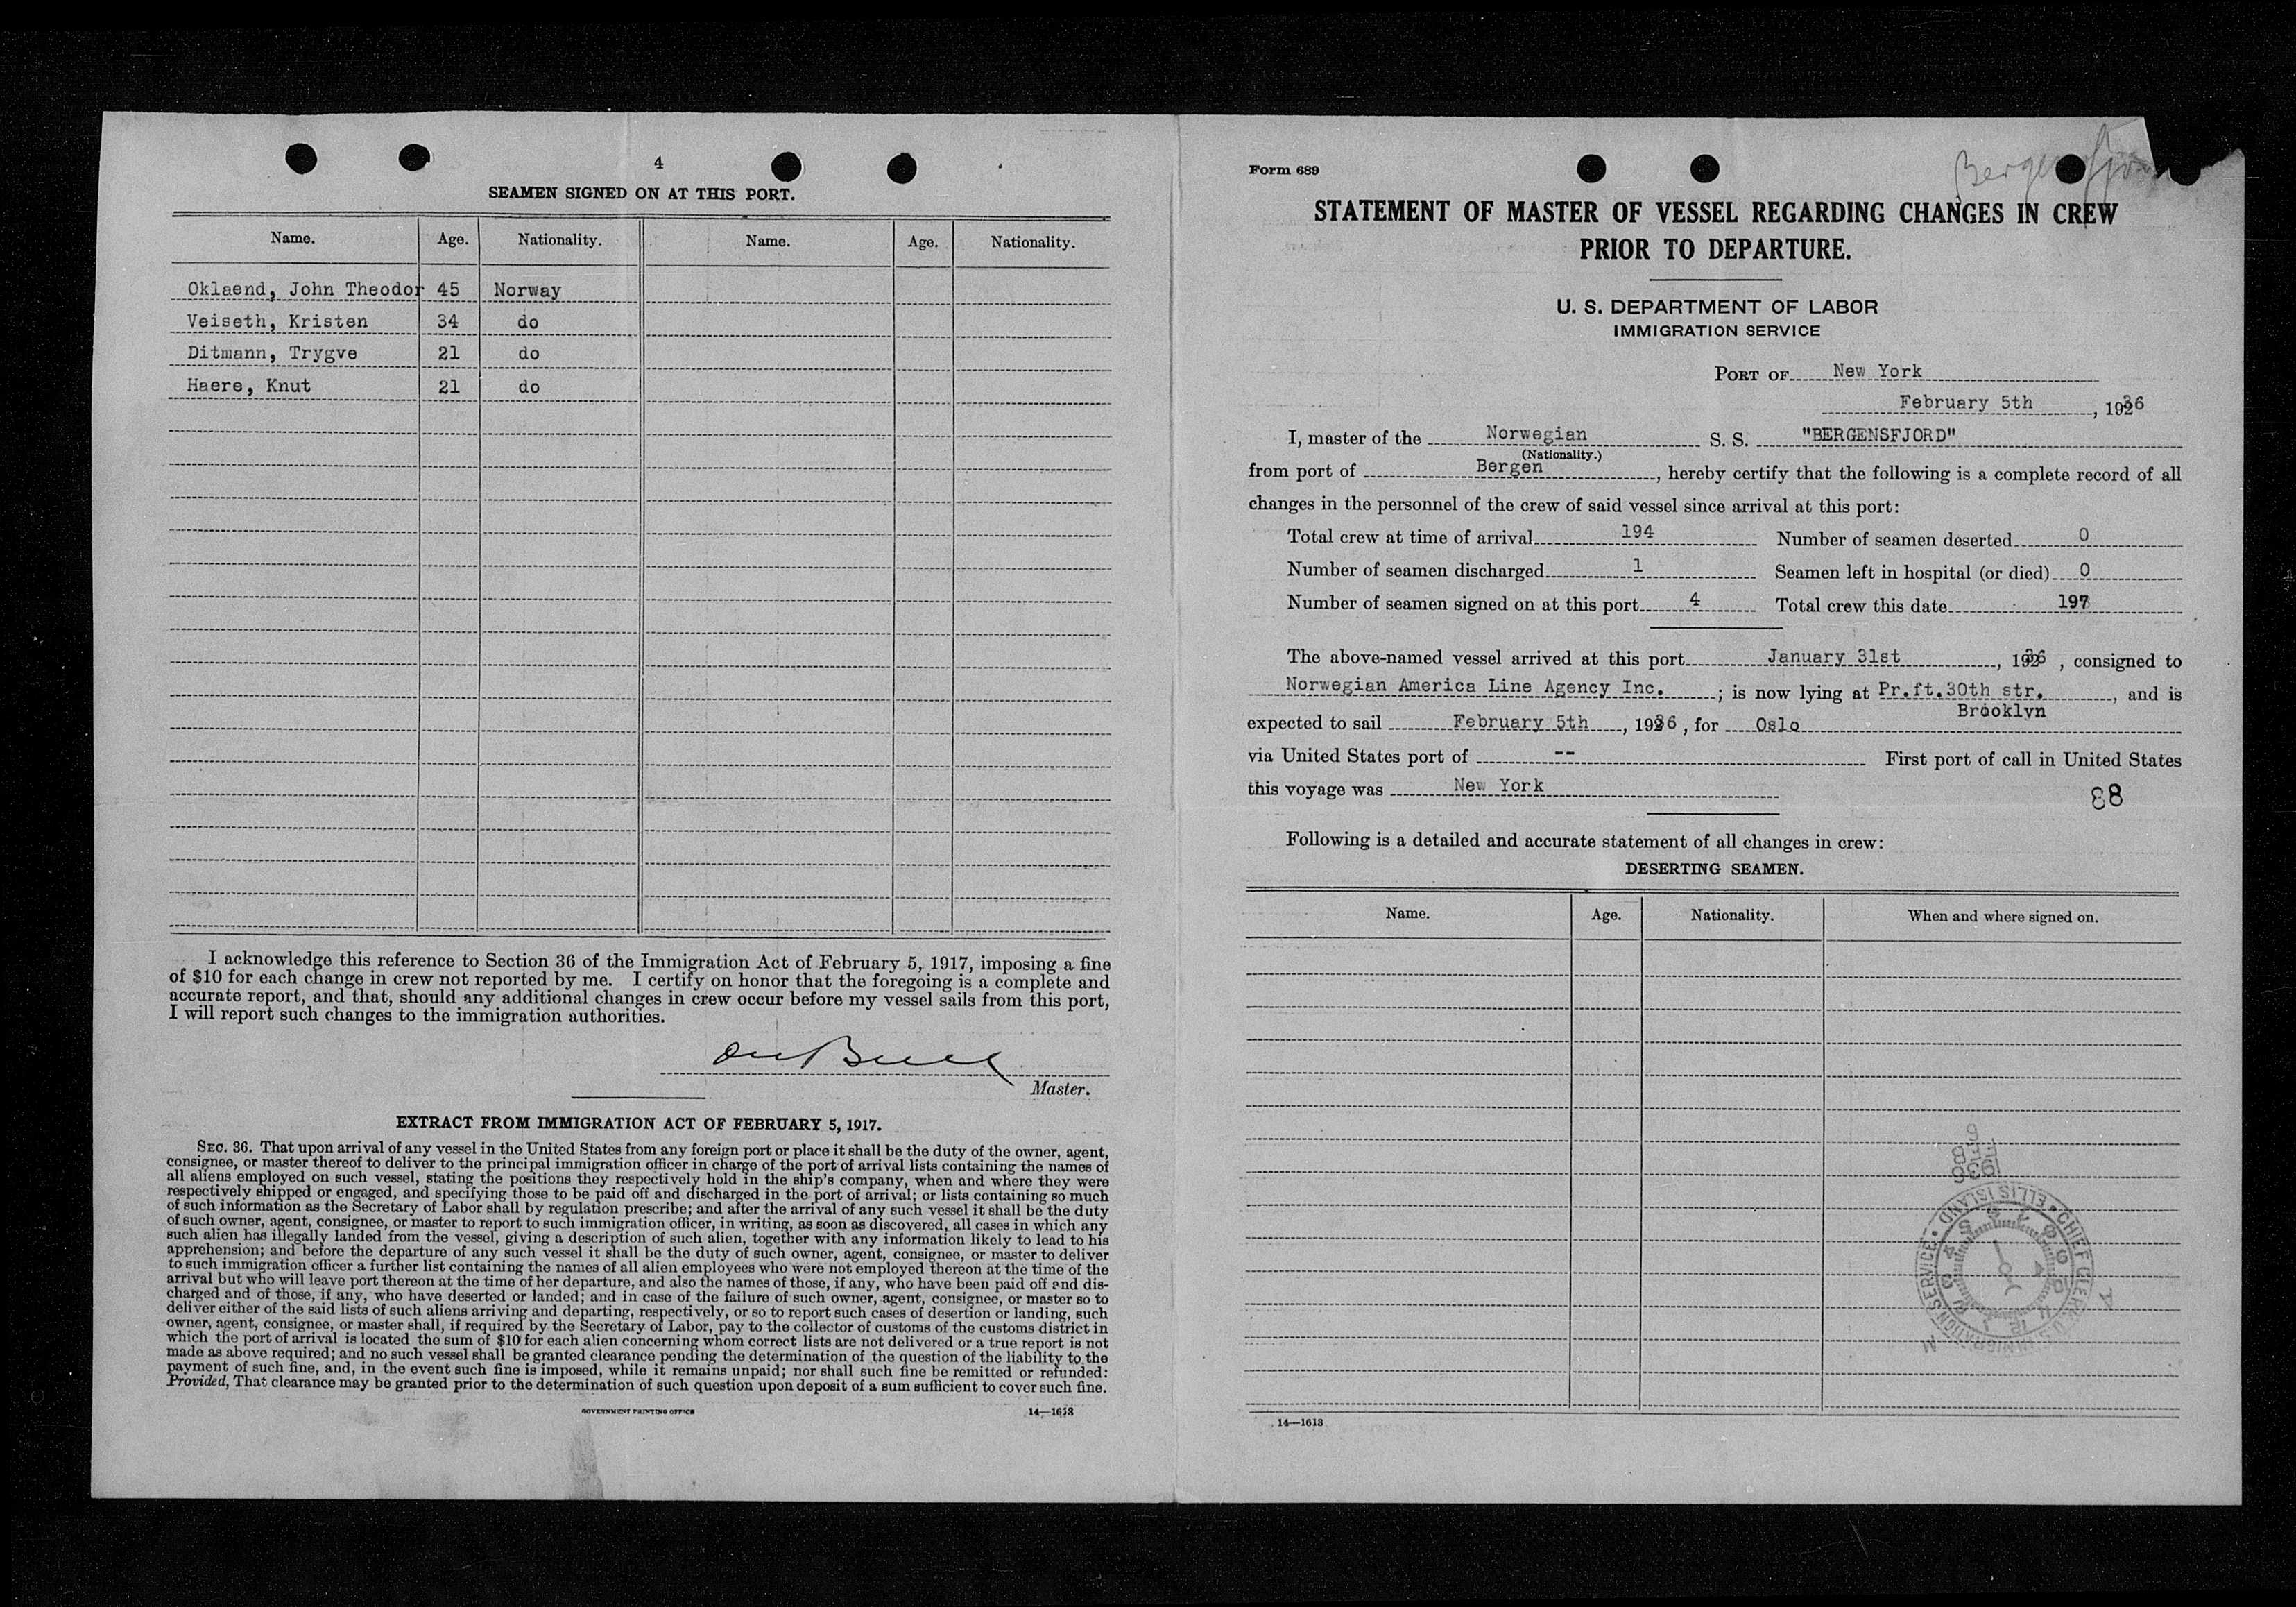 4
SEAMEN SIGNED ON AT THIS PORT.
Name. Age. Nationality. Name. Age. Nationality.
Oklaend, John Theodor 45 Norway
Veiseth, Kristen 34 do
Ditmann, Trygve 21 do
Haere, Knut 21 do
I acknowledge this reference to Section 36 of the Immigration Act of February 5, 1917, imposing a fine
of $10 for each change in crew not reported by me. I certify on honor that the foregoing is a complete and
accurate report, and that, should any additional changes in crew occur before my vessel sails from this port,
I will report such changes to the immigration authorities.
Master.
EXTRACT FROM IMMIGRATION ACT OF FEBRUARY 5, 1917.
SEC. 36. That upon arrival of any vessel in the United States from any foreign port or place it shall be the duty of the owner, agent,
consignee, or master thereof to deliver to the principal immigration officer in charge of the port of arrival lists containing the names of
all aliens employed on such vessel, stating the positions they respectively hold in the ship's company, when and where they were
respectively shipped or engaged, and specifying those to be paid off and discharged in the port of arrival; or lists containing so much
of such information as the Secretary of Labor shall by regulation prescribe; and after the arrival of any such vessel it shall be the duty
of such owner, agent, consignee, or master to report to such immigration officer, in writing, as soon as discovered, all cases in which any
such alien has illegally landed from the vessel, giving a description of such alien, together with any information likely to lead to his
apprehension; and before the departure of any such vessel it shall be the duty of such owner, agent, consignee, or master to deliver
to such immigration officer a further list containing the names of all alien employees who were not employed thereon at the time of the
arrival but who will leave port thereon at the time of her departure, and also the names of those, if any, who have been paid off and dis-
charged and of those, if any, who have deserted or landed; and in case of the failure of such owner, agent, consignee, or master so to
deliver either of the said lists of such aliens arriving and departing, respectively, or so to report such cases of desertion or landing, such
owner, agent, consignee, or master shall, if required by the Secretary of Labor, pay to the collector of customs of the customs district in
which the port of arrival is located the sum of $10 for each alien concerning whom correct lists are not delivered or a true report is not
made as above required; and no such vessel shall be granted clearance pending the determination of the question of the liability to the
payment of such fine, and, in the event such fine is imposed, while it remains unpaid; nor shall such fine be remitted or refunded:
Provided, That clearance may be granted prior to the determination of such question upon deposit of a sum sufficient to cover such fine.
GOVERNMENT PRINTING OFFICE 14—1613
Form 689
Bergensfjord
STATEMENT OF MASTER OF VESSEL REGARDING CHANGES IN CREW
PRIOR TO DEPARTURE.
U. S. DEPARTMENT OF LABOR
IMMIGRATION SERVICE
PORT OF New York
February 5th, 1936
I, master of the Norwegian S. S. "BERGENSFJORD"
(Nationality.)
from port of Bergen, hereby certify that the following is a complete record of all
changes in the personnel of the crew of said vessel since arrival at this port:
Total crew at time of arrival 194 Number of seamen deserted 0
Number of seamen discharged 1 Seamen left in hospital (or died) 0
Number of seamen signed on at this port 4 Total crew this date 197
The above-named vessel arrived at this port January 31st, 1936, consigned to
Norwegian America Line Agency Inc.; is now lying at Pr.ft.30th str., and is
Brooklyn
expected to sail February 5th, 1936, for Oslo
via United States port of -- First port of call in United States
this voyage was New York
88
Following is a detailed and accurate statement of all changes in crew:
DESERTING SEAMEN.
Name. Age. Nationality. When and where signed on.
1936
FEB
ELLIS ISLAND
14—1613